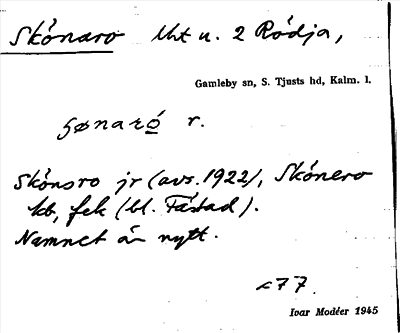 Skónaro lht u. 2 Ródja,
Gamleby sn, S. Tjusts hd, Kalm. l.
ʃønaró r.
Skónsro jr (avs. 1922), Skónero
kb, fek (bl. Fástad).
Namnet är nytt.
c 77.
Ivar Modéer 1945